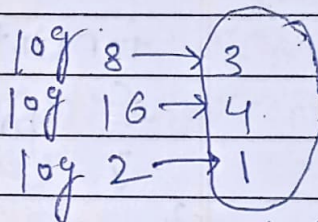 log 8 → 3
log 16 → 4
log 2 → 1